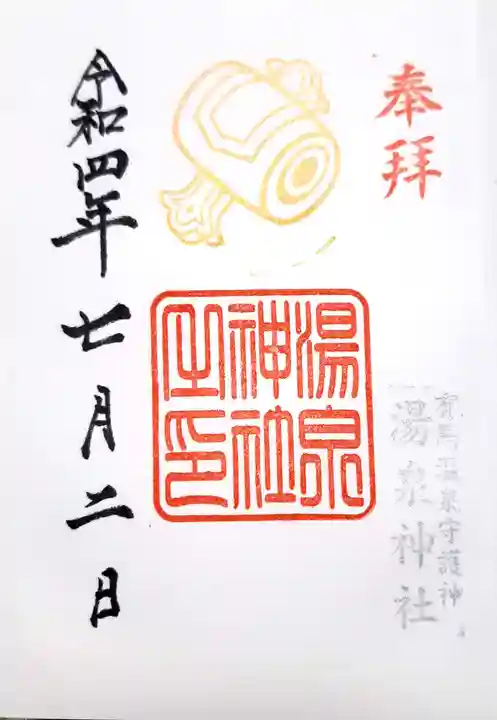 奉拝
有馬温泉守護神
湯泉神社
湯泉
神社
之印
令和四年七月二日